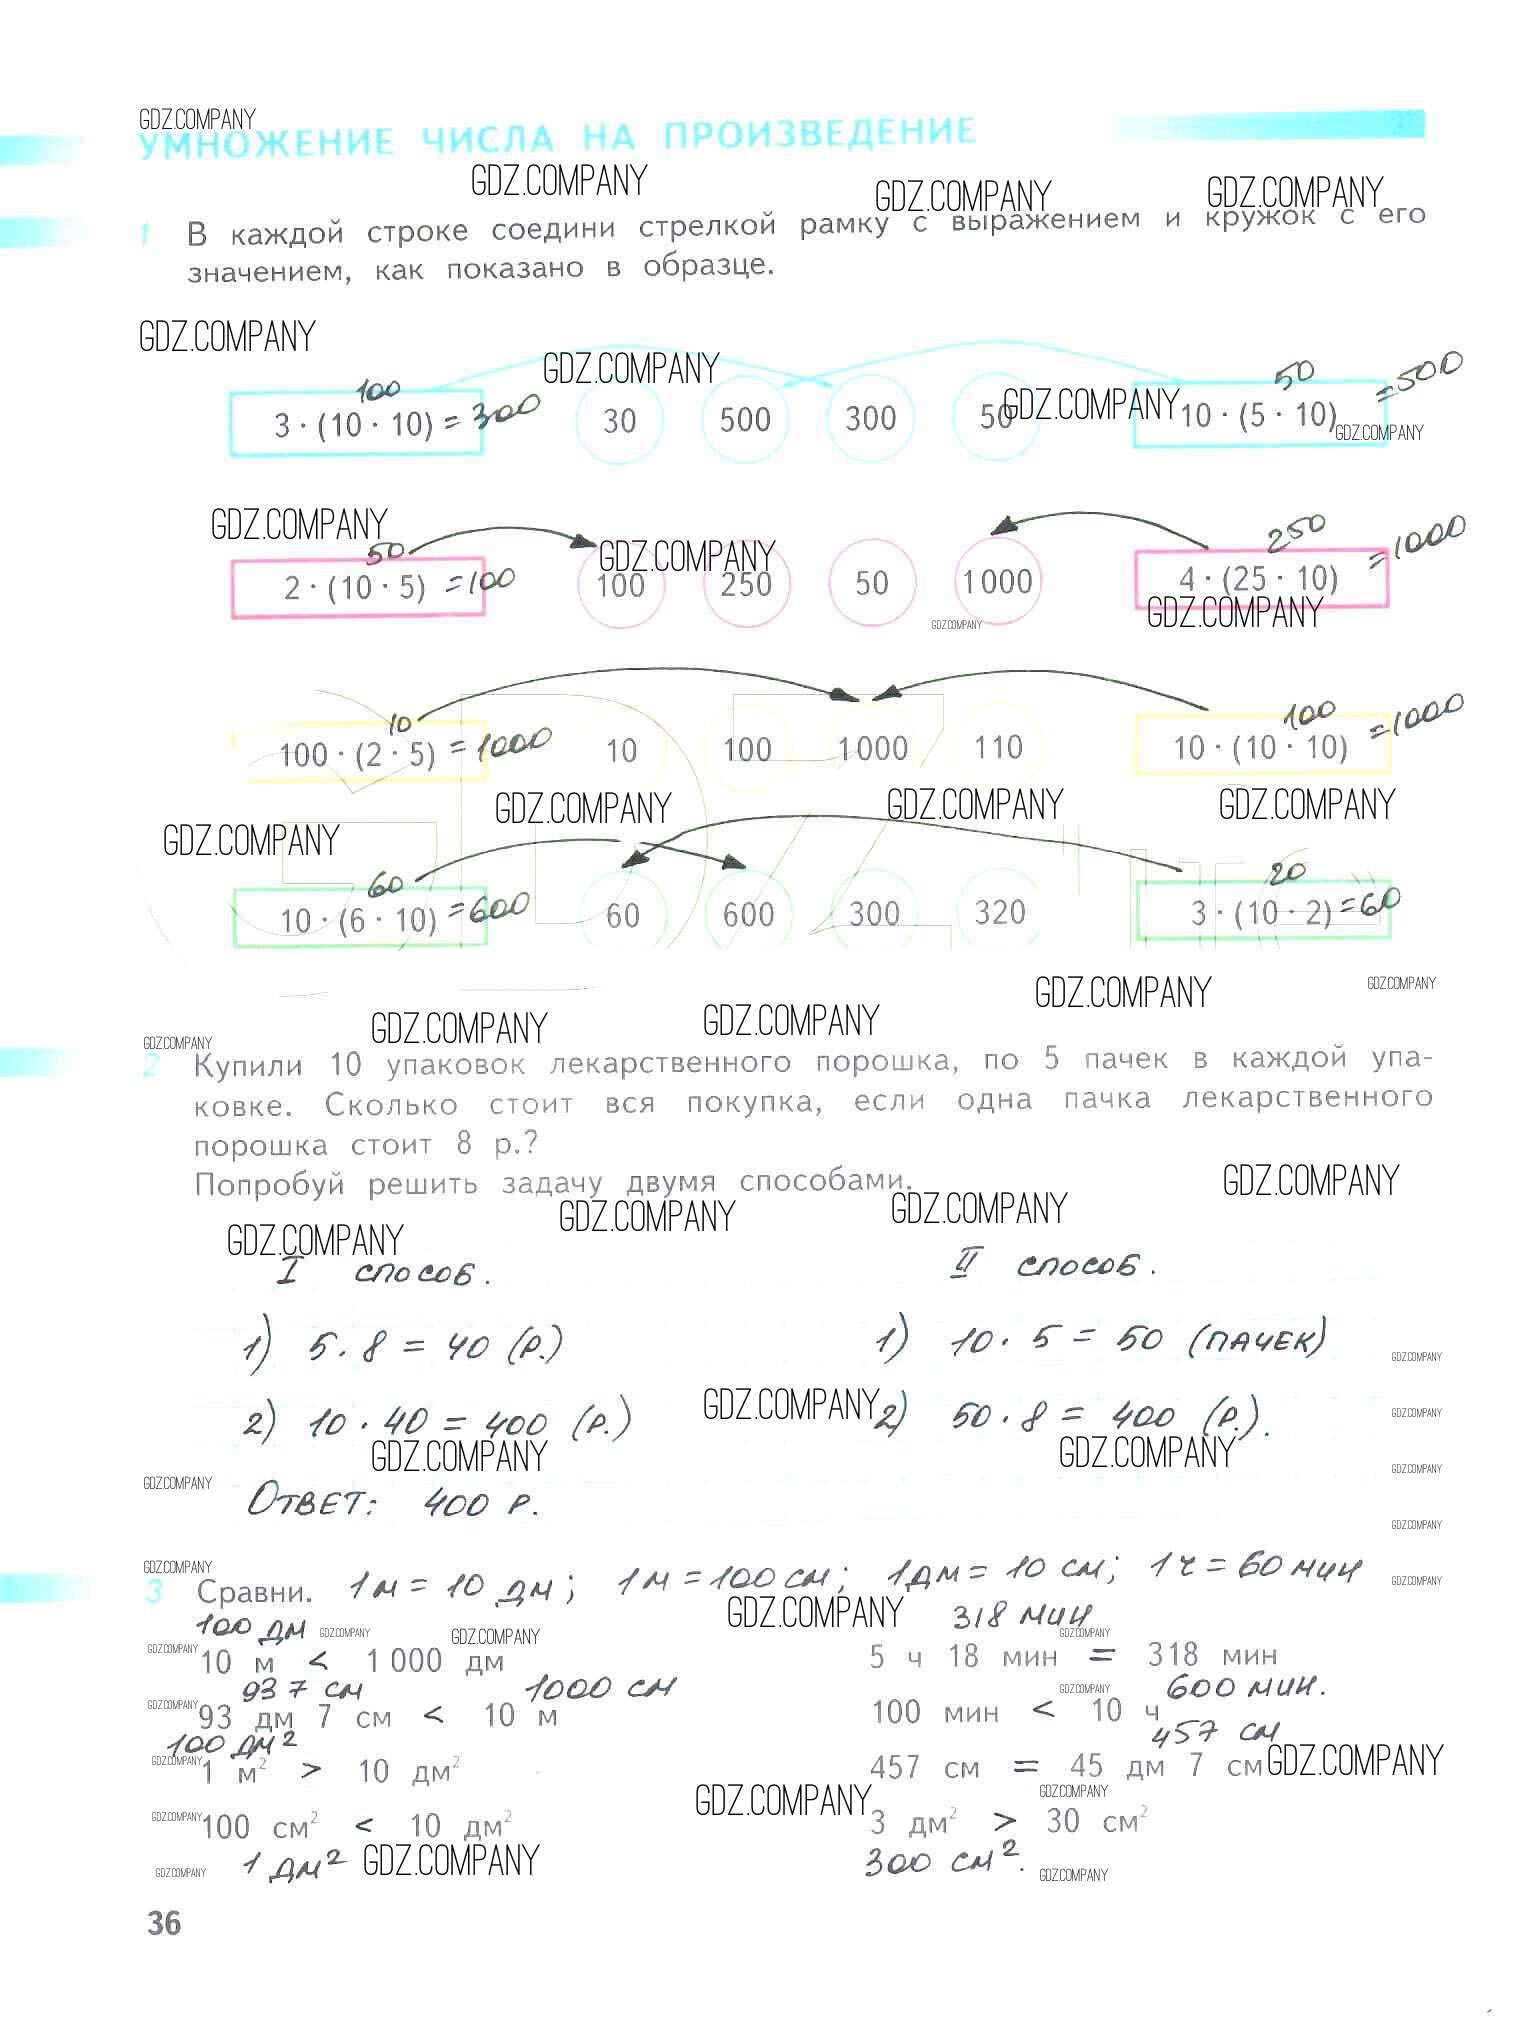 GDZ.COMPANY
УМНОЖЕНИЕ ЧИСЛА НА ПРОИЗВЕДЕНИЕ
GDZ.COMPANY GDZ.COMPANY GDZ.COMPANY
1 В каждой строке соедини стрелкой рамку с выражением и кружок с его
значением, как показано в образце.
GDZ.COMPANY GDZ.COMPANY GDZ.COMPANY GDZ.COMPANY
100 50
3 · (10 · 10) = 300 30 500 300 50 10 · (5 · 10) =500
GDZ.COMPANY GDZ.COMPANY GDZ.COMPANY GDZ.COMPANY
50 250
2 · (10 · 5) =100 100 250 50 1 000 4 · (25 · 10) =1000
10 100
100 · (2 · 5) = 1000 10 100 1000 110 10 · (10 · 10) =1000
GDZ.COMPANY GDZ.COMPANY GDZ.COMPANY GDZ.COMPANY
60 20
10 · (6 · 10) =600 60 600 300 320 3 · (10 · 2) =60
GDZ.COMPANY GDZ.COMPANY
GDZ.COMPANY GDZ.COMPANY GDZ.COMPANY
2 Купили 10 упаковок лекарственного порошка, по 5 пачек в каждой упа-
ковке. Сколько стоит вся покупка, если одна пачка лекарственного
порошка стоит 8 р.?
Попробуй решить задачу двумя способами.
GDZ.COMPANY GDZ.COMPANY GDZ.COMPANY GDZ.COMPANY
I способ. II способ.
1) 5 · 8 = 40 (р.) 1) 10 · 5 = 50 (пачек)
GDZ.COMPANY
2) 10 · 40 = 400 (р.) GDZ.COMPANY 2) 50 · 8 = 400 (р.). GDZ.COMPANY
GDZ.COMPANY GDZ.COMPANY GDZ.COMPANY
GDZ.COMPANY
Ответ: 400 р.
GDZ.COMPANY
GDZ.COMPANY
3 Сравни. 1 м = 10 дм; 1 м = 100 см; 1 дм = 10 см; 1 ч = 60 мин
GDZ.COMPANY GDZ.COMPANY
100 дм GDZ.COMPANY GDZ.COMPANY 318 мин GDZ.COMPANY
GDZ.COMPANY 10 м < 1 000 дм 5 ч 18 мин = 318 мин
937 см 1000 см GDZ.COMPANY 600 мин.
GDZ.COMPANY 93 дм 7 см < 10 м 100 мин < 10 ч
100 дм² 457 см
GDZ.COMPANY 1 м² > 10 дм² 457 см = 45 дм 7 см GDZ.COMPANY
GDZ.COMPANY GDZ.COMPANY
GDZ.COMPANY 100 см² < 10 дм² 3 дм² > 30 см²
GDZ.COMPANY 1 дм² GDZ.COMPANY 300 см². GDZ.COMPANY
36